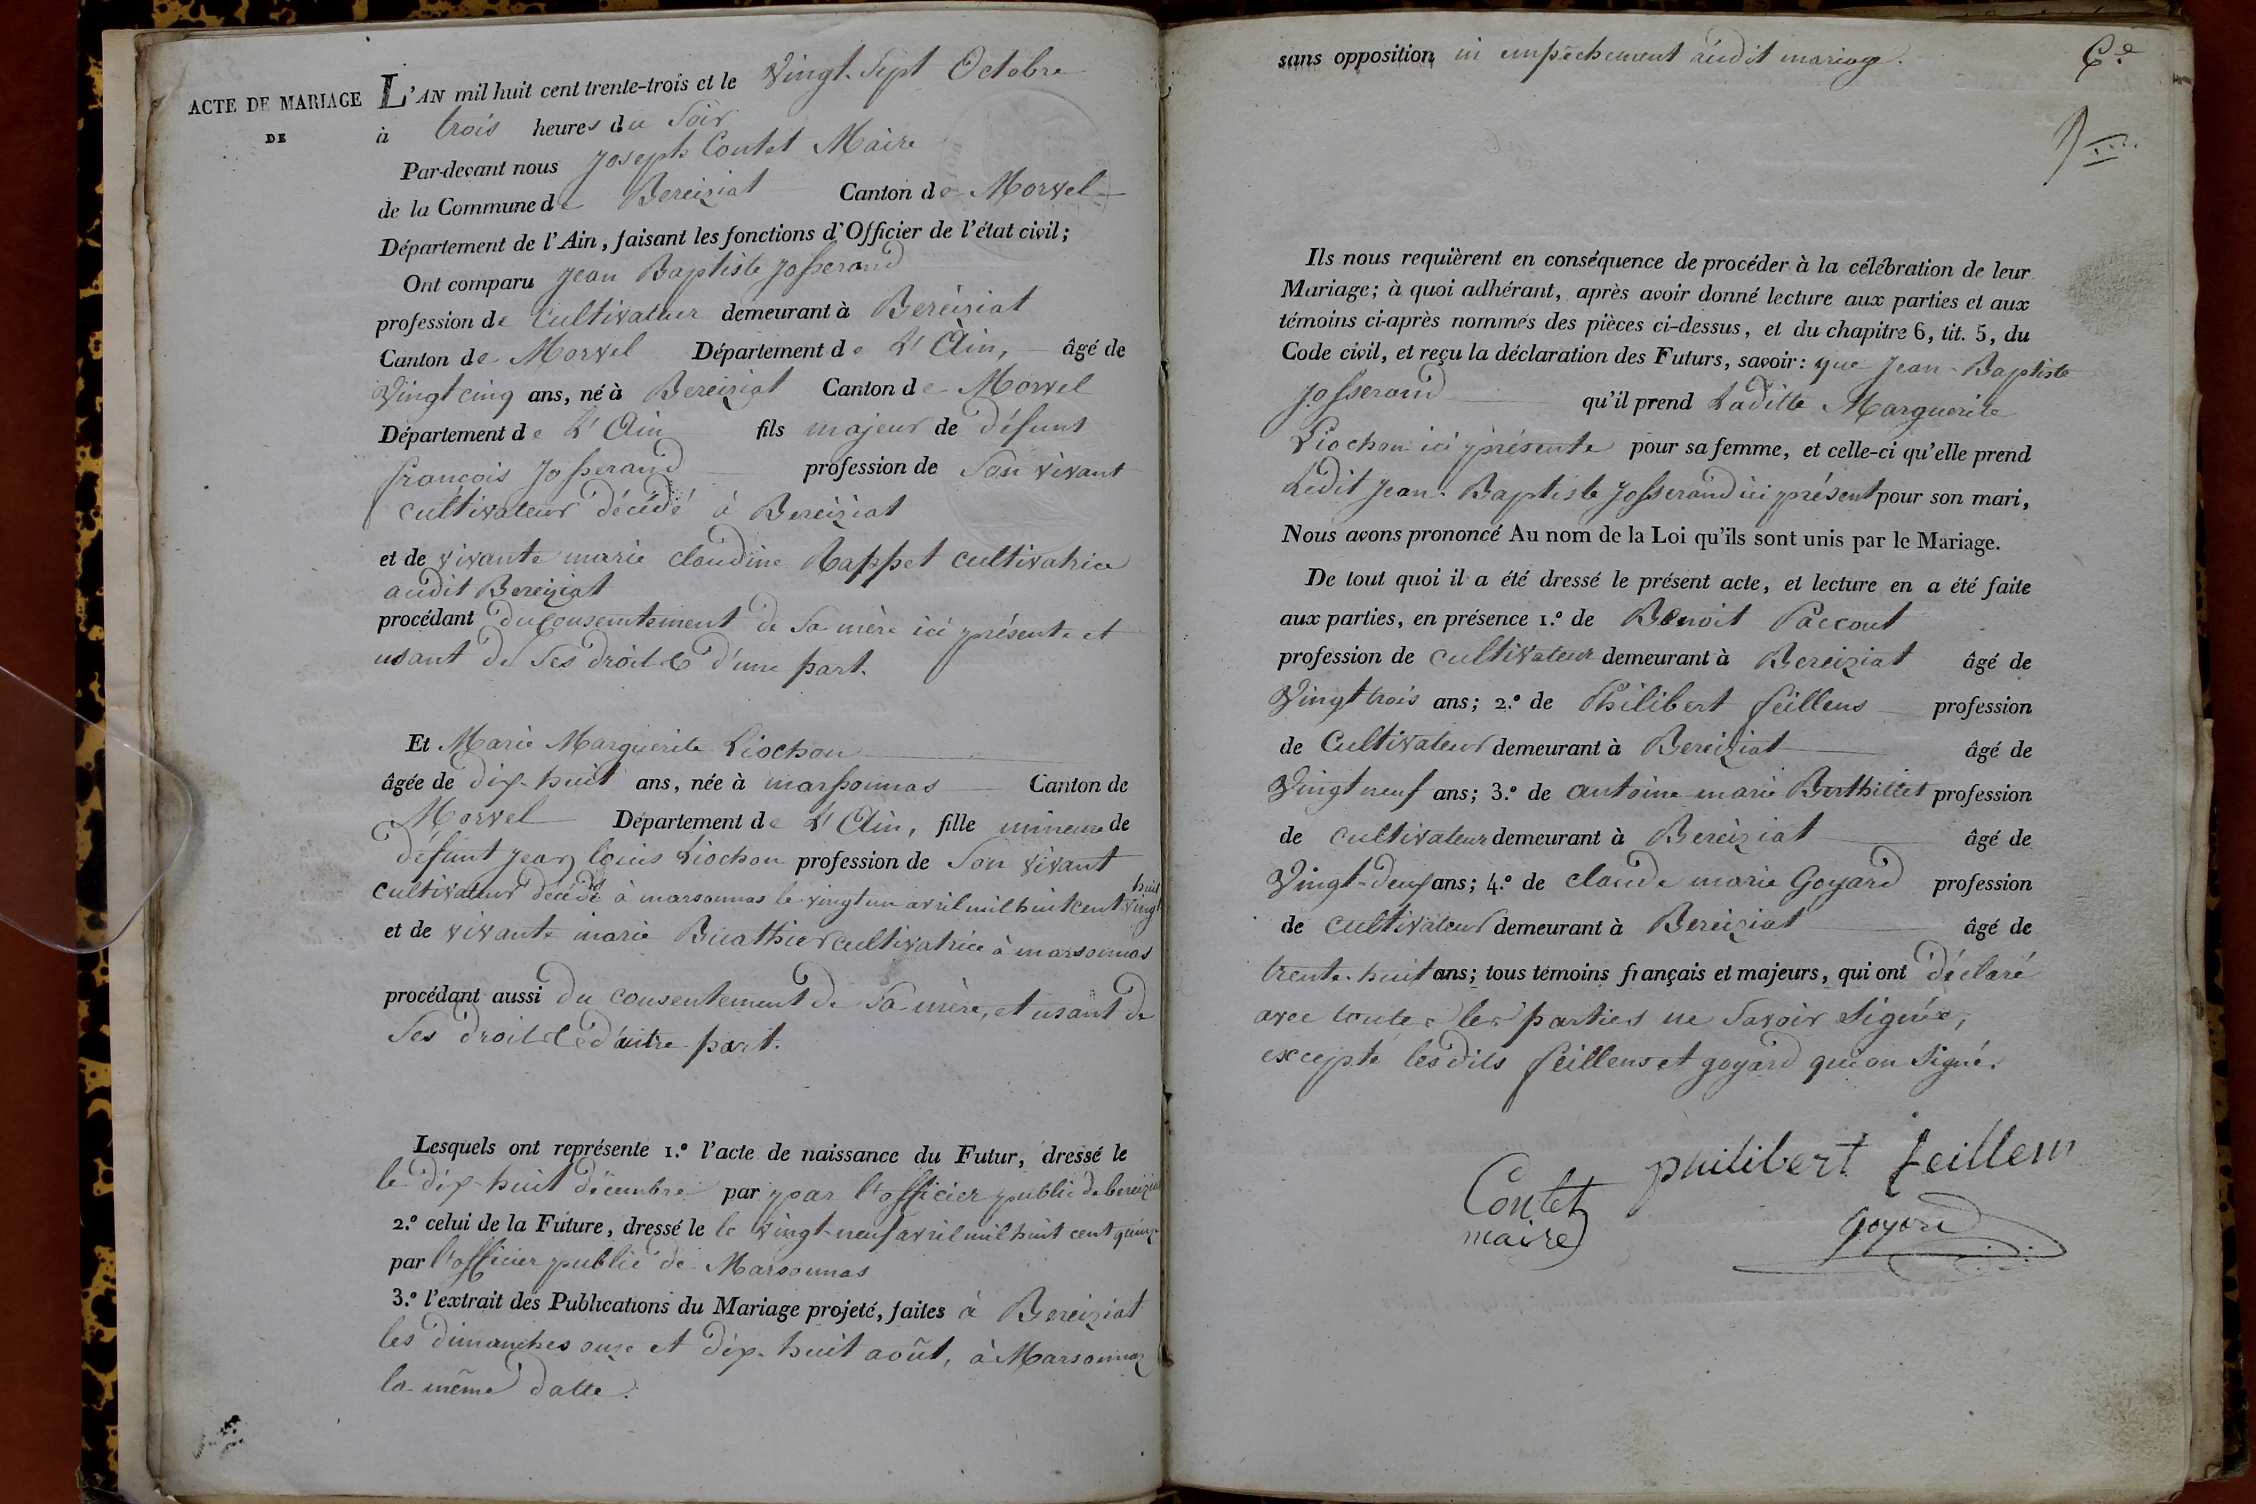 ACTE DE MARIAGE
DE
L'AN mil huit cent trente-trois et le Vingt-Sept Octobre
à trois heures du Soir
Par-devant nous Joseph Contet Maire
de la Commune de Bereiziat Canton de Morvel
Département de l'Ain, faisant les fonctions d'Officier de l'état civil;
Ont comparu Jean Baptiste Josserand
profession de Cultivateur demeurant à Bereiziat
Canton de Morvel Département de L'Ain, âgé de
Vingt cinq ans, né à Bereiziat Canton de Morvel
Département de L'Ain fils majeur de défunt
françois Josserand profession de Son vivant
cultivateur décédé à Bereiziat
et de vivante marie claudine Rappet cultivatrice
audit Bereiziat
procédant du consentement de Sa mère ici présente et
usant de Ses droit & d'une part.
Et Marie Marguerite Liochon
âgée de dix-huit ans, née à marsonnas Canton de
Morvel Département de L'Ain, fille mineure de
défunt jean louis Liochon profession de Son vivant
cultivateur décédé à marsonnas le vingt un avril mil huit cent vingt huit
et de vivante marie Buathier cultivatrice à marsonnas
procédant aussi du consentement de Sa mère, et usant de
Ses droit & d'autre part.
Lesquels ont représente 1.º l'acte de naissance du Futur, dressé le
le dix-huit décembre par par l'officier public de bereiziat
2.º celui de la Future, dressé le le vingt-neuf avril mil huit cent quinze
par l'officier public de Marsonnas
3.º l'extrait des Publications du Mariage projeté, faites à Bereiziat
les dimanches onze et dix-huit août, à Marsonnas
la même datte.
sans opposition ni empêchement audit mariage.
Ils nous requièrent en conséquence de procéder à la célébration de leur
Mariage; à quoi adhérant, après avoir donné lecture aux parties et aux
témoins ci-après nommés des pièces ci-dessus, et du chapitre 6, tit. 5, du
Code civil, et reçu la déclaration des Futurs, savoir: que Jean-Baptiste
Josserand qu'il prend Laditte Marguerite
Liochon ici présente pour sa femme, et celle-ci qu'elle prend
Ledit Jean-Baptiste Josserand ici présent pour son mari,
Nous avons prononcé Au nom de la Loi qu'ils sont unis par le Mariage.
De tout quoi il a été dressé le présent acte, et lecture en a été faite
aux parties, en présence 1.º de Benoit Paccout
profession de cultivateur demeurant à Bereiziat âgé de
Vingt trois ans; 2.º de Philibert feillens profession
de Cultivateur demeurant à Bereiziat âgé de
Vingt neuf ans; 3.º de antoine marie Berthillet profession
de cultivateur demeurant à Bereiziat âgé de
Vingt-deux ans; 4.º de claude marie Goyard profession
de cultivateur demeurant à Bereiziat âgé de
trente-huit ans; tous témoins français et majeurs, qui ont déclaré
avec toute les parties ne Savoir Signée,
excepté lesdits feillens et goyard qui on Signé.
philibert feillens
Contet
maire
goyard